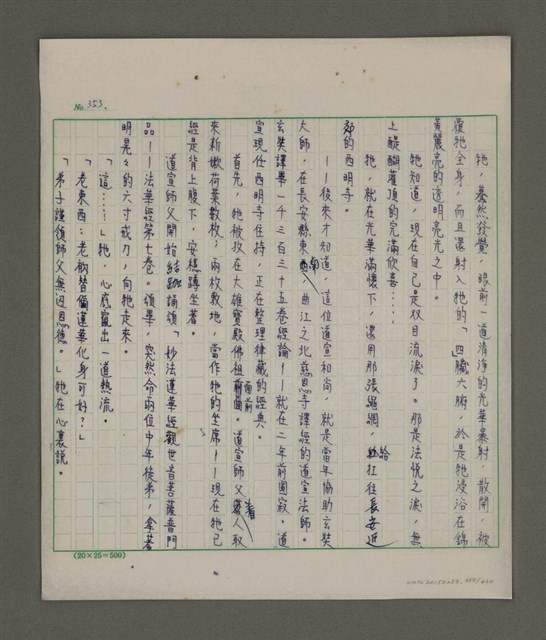 No. 353.
牠，驀然發覺，眼前一道清淨的光華暴射，散開，被
覆牠全身，而且還射入牠的「四臟六腑，於是牠浸浴在錦
黃麗亮的透明亮光之中。
牠知道，現在自己是双目流淚了。那是法悅之淚，無
上醍醐灌頂的完滿欣喜……
牠，就在光華滿懷下，還用那張繩網，給扛往長安近
郊的西明寺。
——後來才知道，這位道宣和尚，就是當年協助玄奘
大師，在長安縣東南，曲江之北慈恩寺譯經的道宣法師。
玄奘譯畢一千三百三十五卷經論——就在二年前圓寂。道
宣現任西明寺住持，正在整理律藏的經典。
首先，牠被放在大雄寶殿佛祖面前。道宣師父着人取
來新嫩荷葉數枚，兩枚敷地，當作牠的坐席——現在牠已
經是背上腹下，安穩蹲坐著。
道宣師父開始結跏誦領「妙法蓮華經觀世音菩薩普門
品——法華經第七卷。領畢，突然命兩位中年徒弟，拿著
明晃々的六寸戒刀，向牠走來。
「這……」牠，心底竄出一道熱流。
「老東西：老衲替儞蓮華化身可好？」
「弟子謹領師父無迴恩德。」牠在心裏說。
(20×25=500)